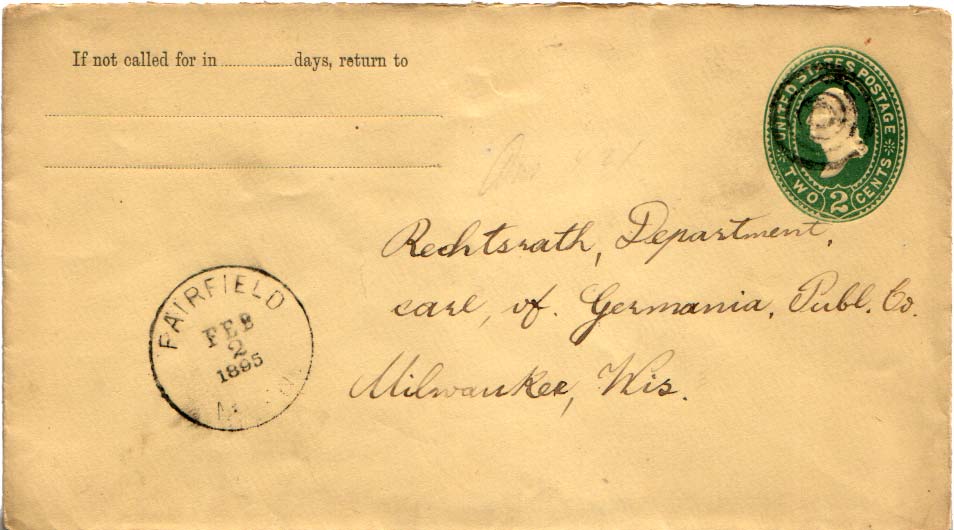 If not called for in ............... days, return to
UNITED STATES POSTAGE
TWO 2 CENTS
Rechtsrath, Department,
care, of. Germania, Publ. Co.
Milwaukee, Wis.
FAIRFIELD
FEB
2
1895